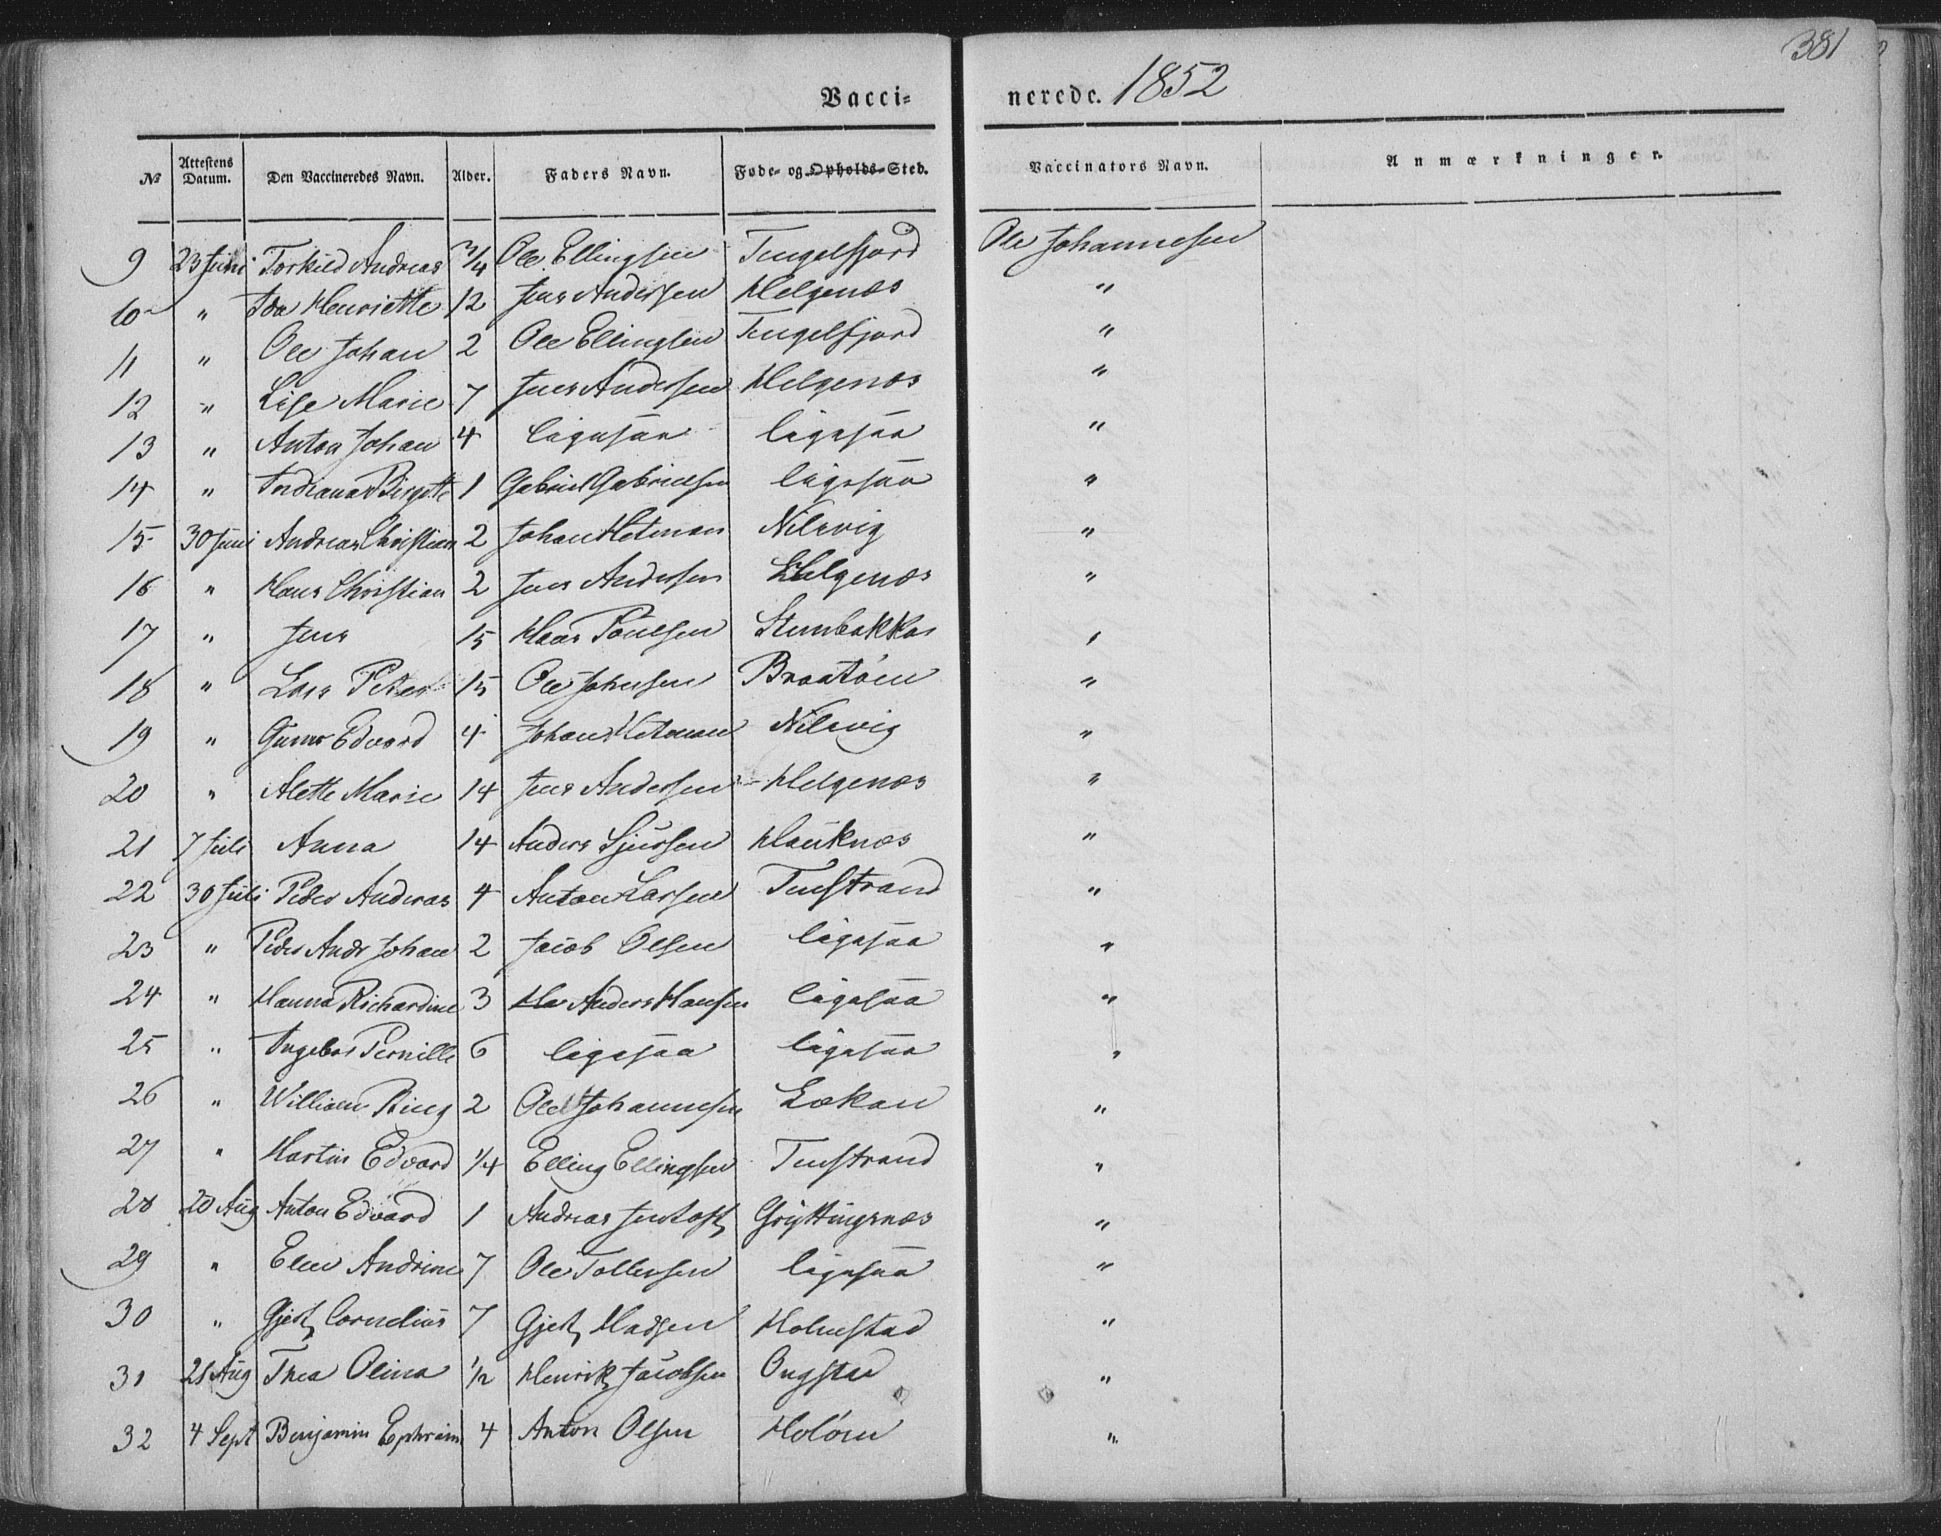 381
Vacci= nerede. 1852
No Attestens Datum. Den Vaccineredes Navn. Alder. Faders Navn. Føde- og Opholds-Sted. Vaccinators Navn. Anmærkninger.
9 23 Juni Torkild Andreas 3/4 Ole Ellingsen Tengelfjord Ole Johannesen
10 " Ida Henriette 12 Jens Andersen Helgenæs "
11 " Ole Johan 2 Ole Ellingsen Tengelfjord "
12 " Lise Marie 7 Jens Andersen Helgenæs "
13 " Anton Johan 4 ligesaa ligesaa "
14 " Birgitte 1 Gabriel Gabrielsen ligesaa "
15 30 Juni Andreas Christian 2 Johan Hetman Nilsvig "
16 " Hans Christian 2 Jens Andersen Helgenæs "
17 " Jens 15 Hans Poulsen Steinbakken "
18 " Lars Peter 15 Ole Johnsen Brootøen "
19 " Gunner Edvard 4 Johan Hetman Nilsvig "
20 " Alette Marie 14 Jens Andersen Helgenæs "
21 7 Juli Anna 14 Anders Sjursen Hauknæs "
22 30 Juli Peder Andreas 4 Anton Larsen Tenstrand "
23 " Peder Andr Johan 2 Jacob Olsen ligesaa "
24 " Hanna Richardine 3 Ha Anders Hansen ligesaa "
25 " Ingebor Pernille 6 ligesaa ligesaa "
26 " William Ring 2 Ole Johannesen Lokan "
27 " Martin Edvard 1/4 Elling Ellingsen Tenstrand "
28 20 Aug Anton Edvard 1 Andreas Jentoft Gryttingsnæs "
29 " Elen Andrine 7 Ole Tollefsen ligesaa "
30 " Gjert Cornelius 7 Gjert Madsen Holmstad "
31 21 Aug Thea Olina 1/2 Henrik Jacobsen Ongstad "
32 4 Sept Benjamin Ephraim 4 Anton Olsen Holøen "